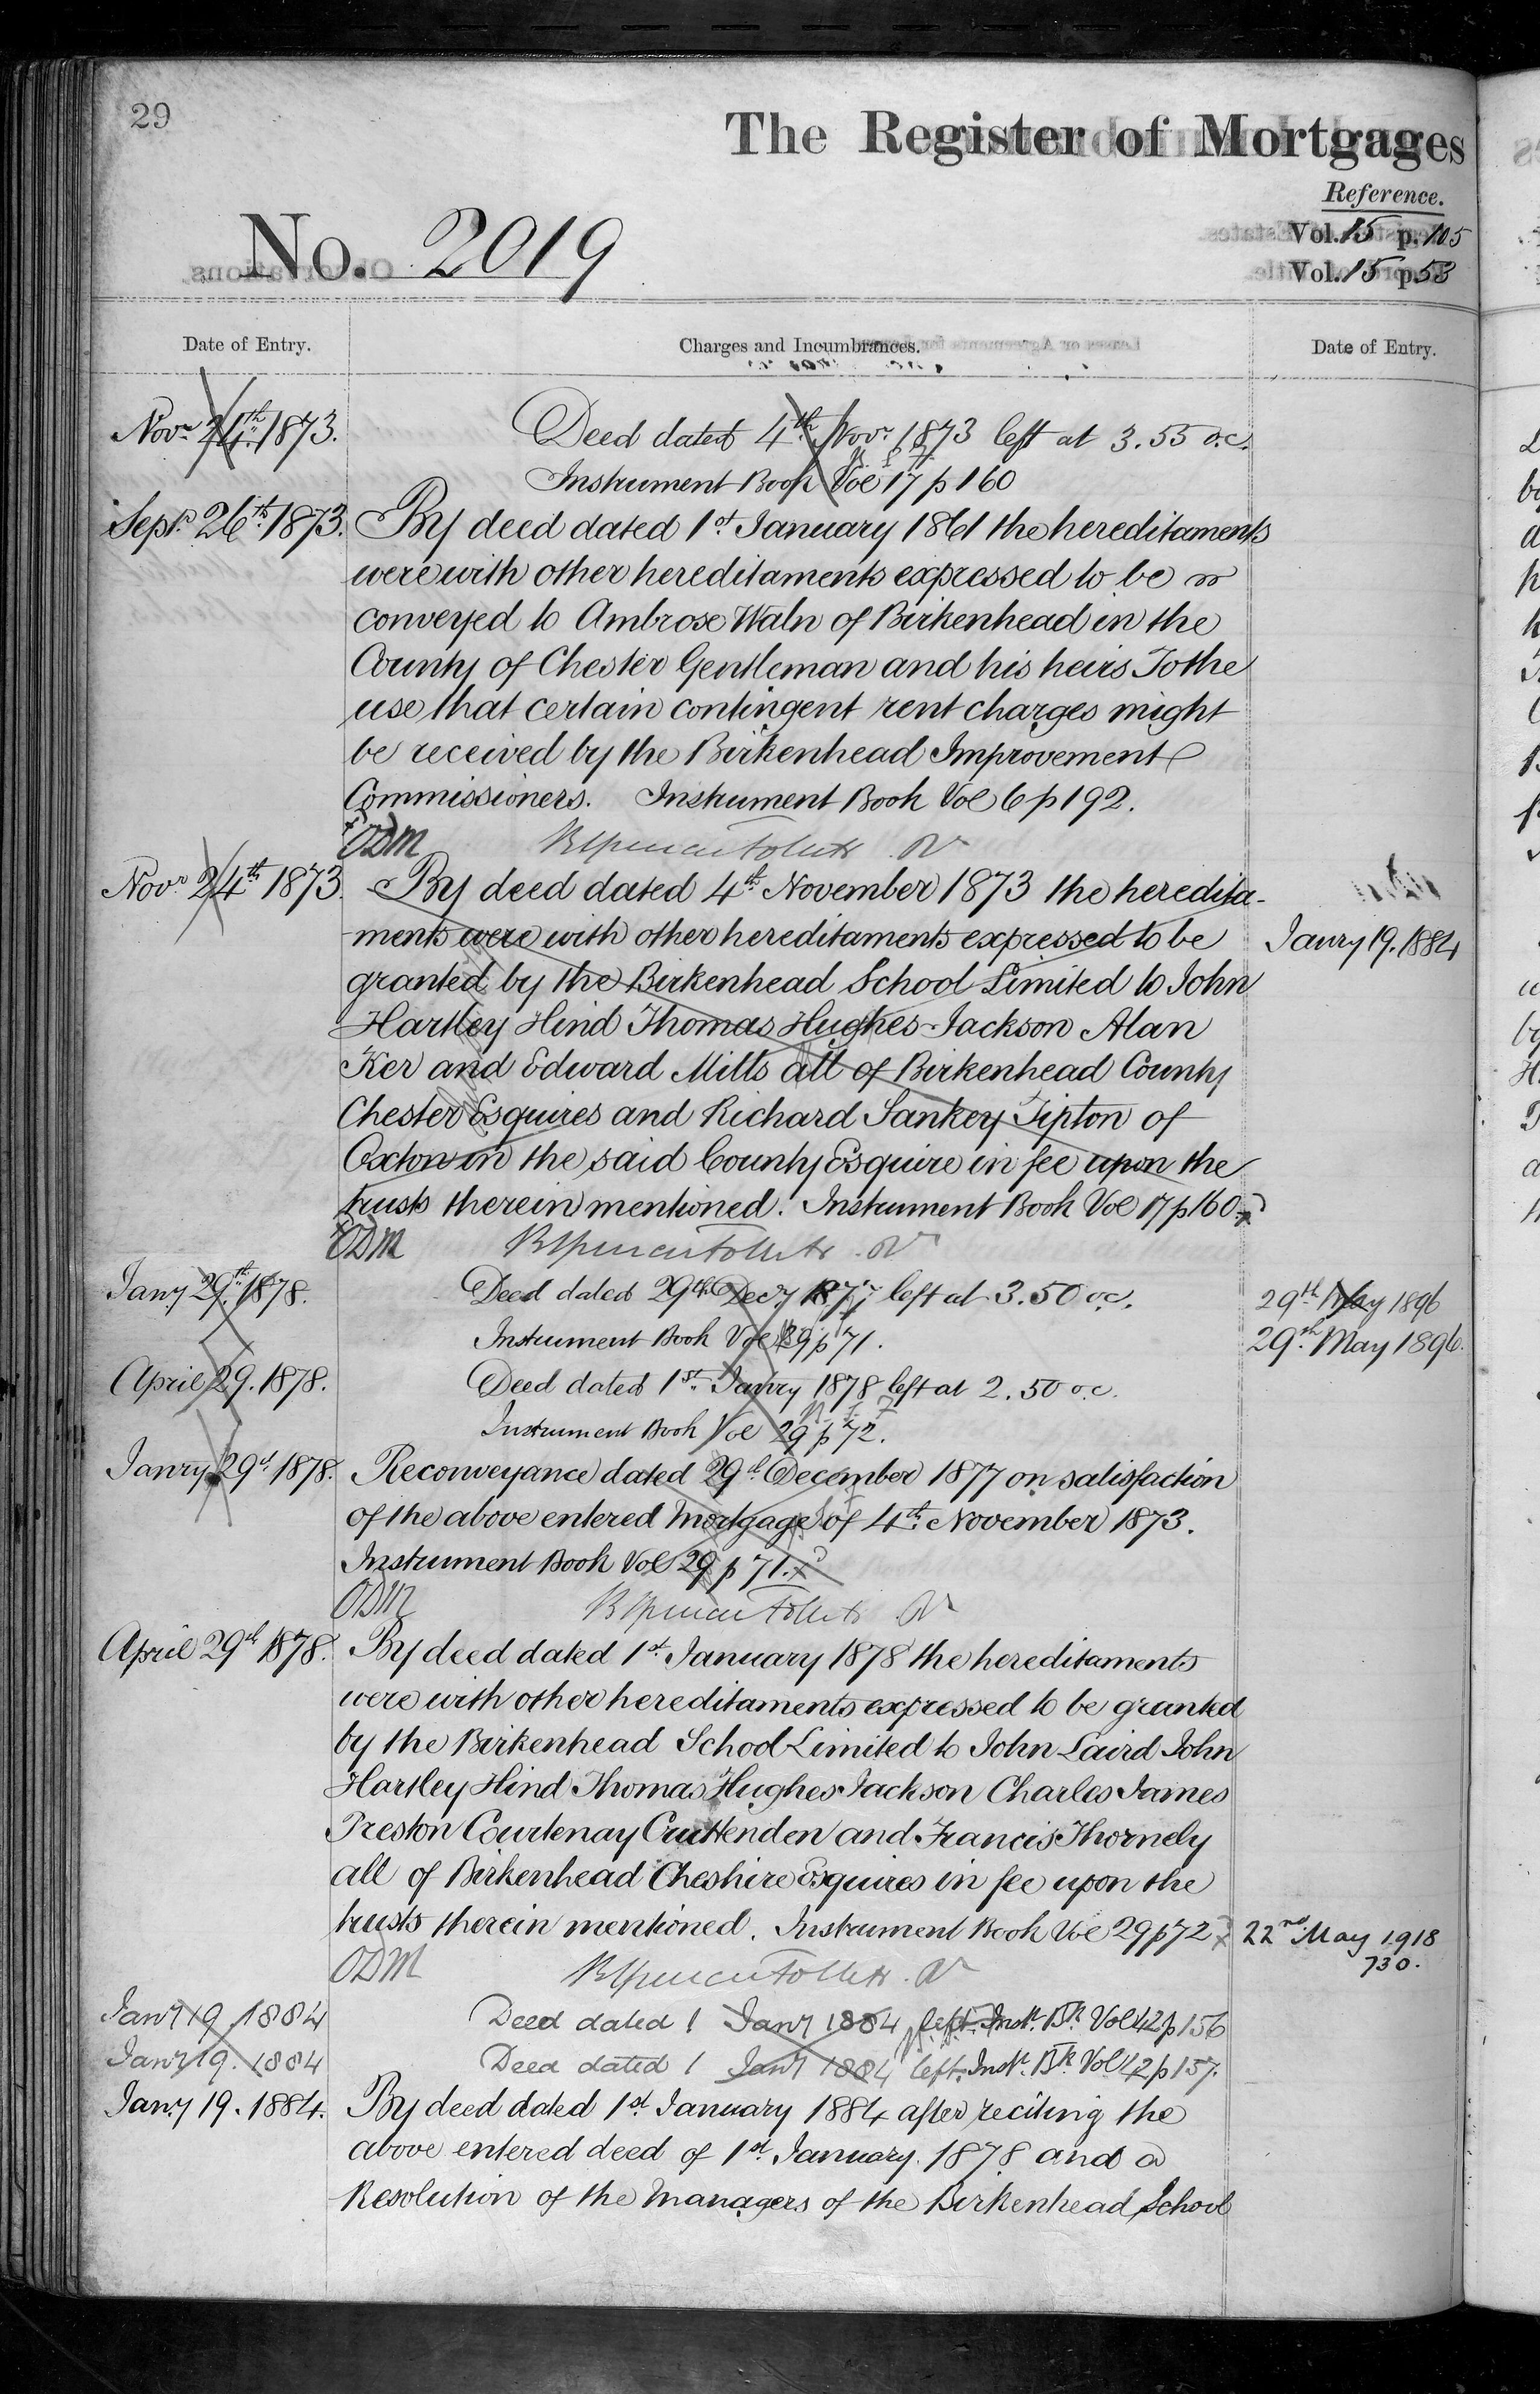 29
The Register of Mortgages
Reference.
Vol. 15 p. 105
No. 2019
Vol. 15 p. 53
Date of Entry.
Charges and Incumbrances.
Date of Entry.
Novr 24th 1873.
Deed dated 4th Novr 1873 left at 3.55 o.c.
Instrument Book Vol 17 p 160
Septr 26th 1873.
By deed dated 1st January 1861 the hereditaments
were with other hereditaments expressed to be
conveyed to Ambrose Waln of Birkenhead in the
County of Chester Gentleman and his heirs To the
use that certain contingent rent charges might
be received by the Birkenhead Improvement
Commissioners. Instrument Book Vol 6 p 192.
ODM
Novr 24th 1873.
By deed dated 4th November 1873 the heredita-
ments were with other hereditaments expressed to be
Janry 19. 1884
granted by the Birkenhead School Limited to John
Hartley Hind Thomas Hughes Jackson Alan
Ker and Edward Mills all of Birkenhead County
Chester Esquires and Richard Sankey Tipton of
Oxton in the said County Esquire in fee upon the
trusts therein mentioned. Instrument Book Vol 17 p 160
ODM
Jany 29th 1878.
Deed dated 29th Decr 1877 left at 3.50 o.c.
29th May 1896
Instrument Book Vol 29 p 71.
29th May 1896.
April 29. 1878.
Deed dated 1st Janry 1878 left at 2.50 o.c.
Instrument Book Vol 29 p 72.
Janry 29th 1878.
Reconveyance dated 29th December 1877 on satisfaction
of the above entered Mortgage of 4th November 1873.
Instrument Book Vol 29 p 71.
ODM
April 29th 1878.
By deed dated 1st January 1878 the hereditaments
were with other hereditaments expressed to be granted
by the Birkenhead School Limited to John Laird John
Hartley Hind Thomas Hughes Jackson Charles James
Preston Courtenay Cruttenden and Francis Thornely
all of Birkenhead Cheshire Esquires in fee upon the
trusts therein mentioned. Instrument Book Vol 29 p 72
22nd May 1918
730.
ODM
Jany 19 1884
Deed dated 1 Jany 1884 left Inst. Bk. Vol 42 p 156
Jany 19. 1884
Deed dated 1 Jany 1884 left. Inst. Bk. Vol 42 p 157.
Jany 19. 1884.
By deed dated 1st January 1884 after reciting the
above entered deed of 1st January 1878 and a
Resolution of the Managers of the Birkenhead School